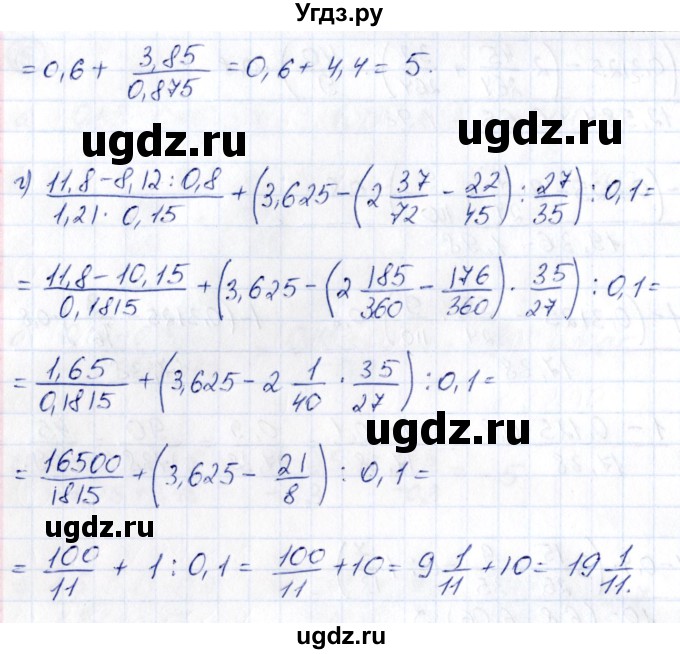 Угдз.ру
= 0,6 + 3,85/0,875 = 0,6 + 4,4 = 5.
ugdz.ru ugdz.ru
г) (11,8 - 8,12 : 0,8)/(1,21 · 0,15) + (3,625 - (2 37/72 - 22/45) : 27/35) : 0,1 =
= (11,8 - 10,15)/0,1815 + (3,625 - (2 185/360 - 176/360) · 35/27) : 0,1 =
= 1,65/0,1815 + (3,625 - 2 1/40 · 35/27) : 0,1 =
ugdz.ru
= 16500/1815 + (3,625 - 21/8) : 0,1 =
ugdz.ru
= 100/11 + 1 : 0,1 = 100/11 + 10 = 9 1/11 + 10 = 19 1/11.
ugdz.ru